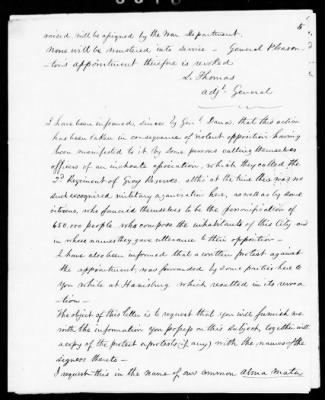 5
raised will be assigned by the War Department.
None will be mustered into service - General Pleason-
ton's appointment therefore is revoked
L. Thomas
Adjt. General
I have been informed, since by Genl. Dana, that this action
has been taken in consequence of violent opposition having
been manifested to it by some persons calling themselves
officers of an inchoate association, which they called the
2d Regiment of Gray Reserves. altho' at the time there was no
such recognized military organization here, as well as by some
citizens, who fancied themselves to be the personification of
650,000 people who compose the inhabitants of this City and
in whose names they gave utterance to their opposition -
I have also been informed that a written protest against
the appointment, was forwarded by some parties here to
you while at Harrisburg which resulted in its revoca-
tion -
The object of this letter is to request that you will furnish me
with the information you possess on this subject, together with
a copy of the protest or protests (if any) with the names of the
signers thereto -
I request this in the name of our common Alma Mater